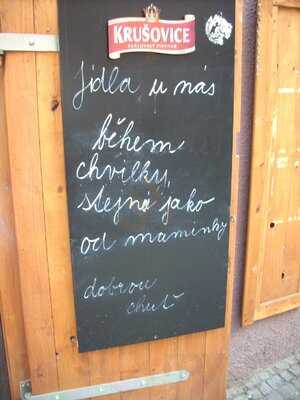 KRUŠOVICE
KRÁLOVSKÝ PIVOVAR
jídla u nás
během
chvilky,
stejná jako
od maminky
dobrou
chuť